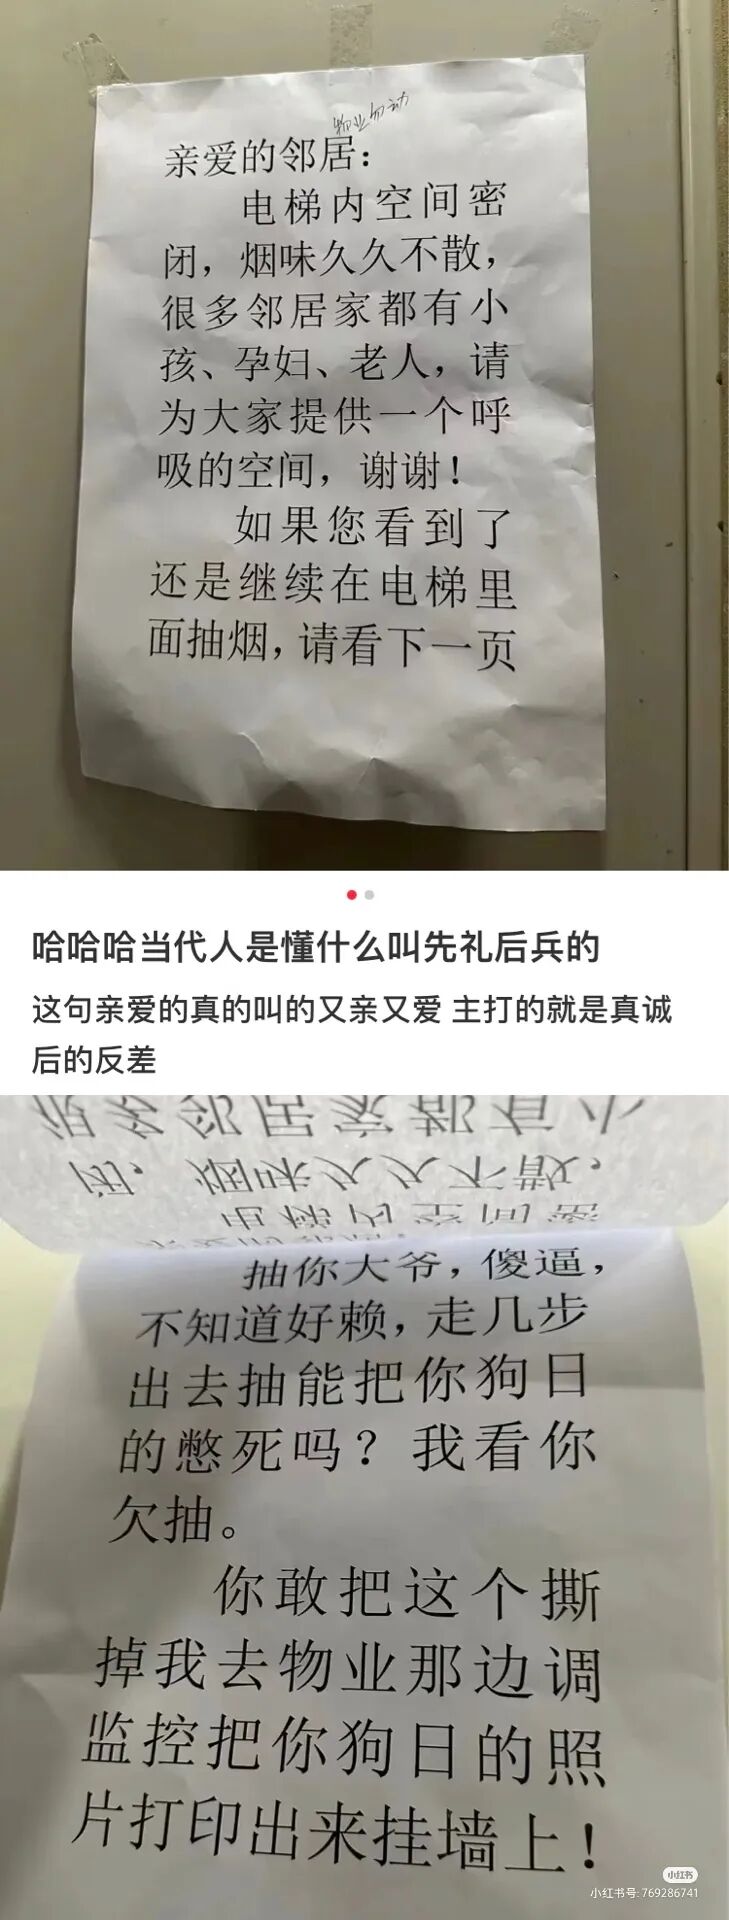 物业勿动
亲爱的邻居：
电梯内空间密
闭，烟味久久不散，
很多邻居家都有小
孩、孕妇、老人，请
为大家提供一个呼
吸的空间，谢谢！
如果您看到了
还是继续在电梯里
面抽烟，请看下一页
哈哈哈当代人是懂什么叫先礼后兵的
这句亲爱的真的叫的又亲又爱 主打的就是真诚
后的反差
很多邻居家都有小
闭，烟味久久不散，
电梯内空间密
抽你大爷，傻逼，
不知道好赖，走几步
出去抽能把你狗日
的憋死吗？我看你
欠抽。
你敢把这个撕
掉我去物业那边调
监控把你狗日的照
片打印出来挂墙上！
小红书
小红书号: 769286741